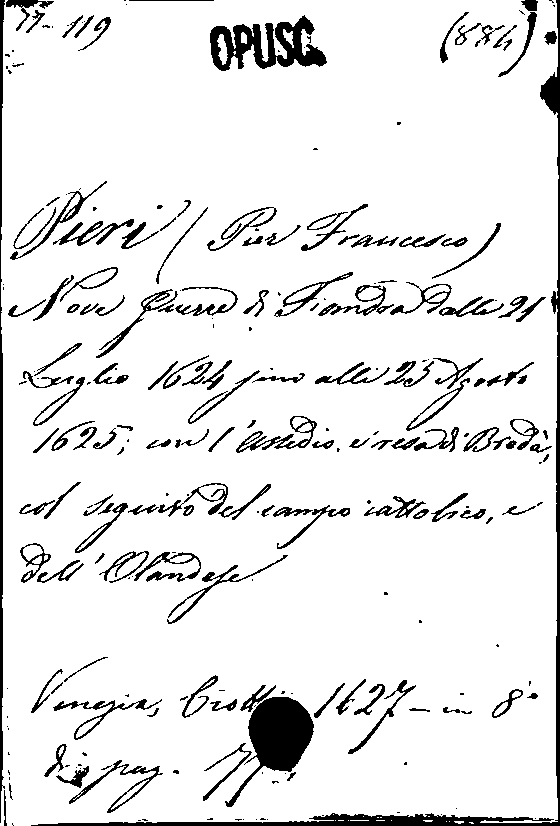 77-119 OPUSC. (884)
Pieri (Pier Francesco)
Nove guerre di Fiandra dalli 21
Luglio 1624 fino alli 25 Agosto
1625; con l'assedio, e resa di Bredà,
col seguito del campo cattolico, e
dell'Olandese
Venezia, 1627 - in 8°
di pag.